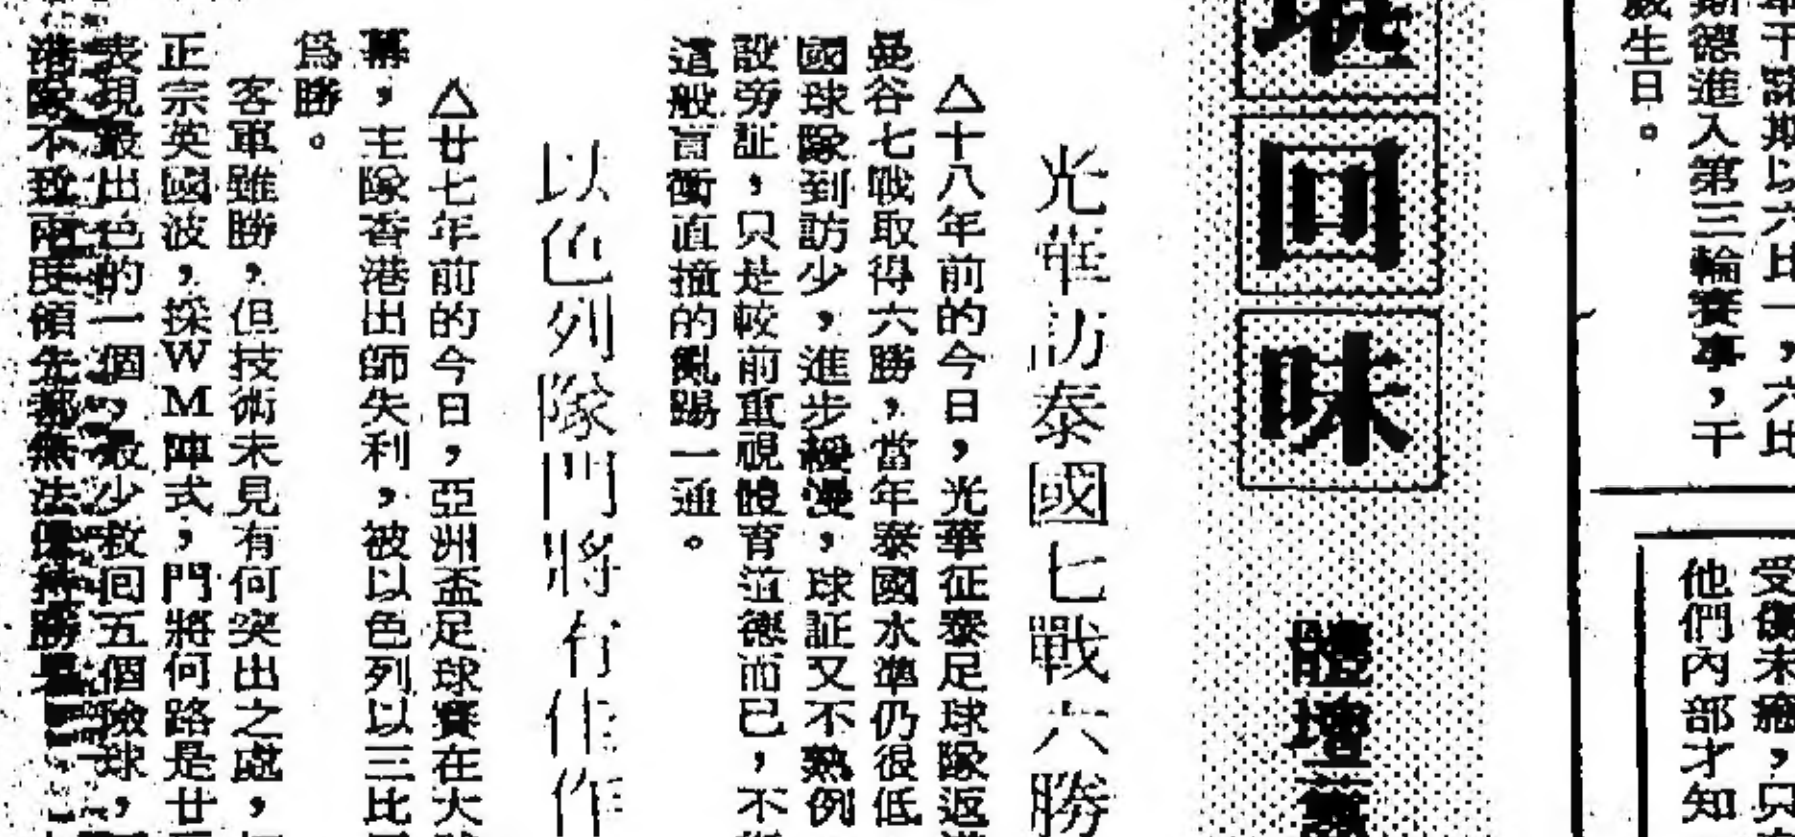 軍干諾期以六比一，六比
斯德進入第三輪賽事，干
歲生日。
受傷未癒，只
他們內部才知
堪回味
體壇
光華訪泰國七戰六勝
△十八年前的今日，光華征泰足球隊返
曼谷七戰取得六勝，當年泰國水準仍很低
國球隊到訪少，進步緩慢，球証又不熟例
設旁証，只是較前重視體育道德而已，不
這般盲衝直撞的亂踢一通。
以色列隊門將有佳作
△廿七年前的今日，亞洲盃足球賽在大
幕，主隊香港出師失利，被以色列以三比
爲勝。
客軍雖勝，但技術未見有何突出之處，
正宗英國波，採WM陣式，門將何路是廿
表現最出色的一個，最少救回五個險球，
港隊不致兩度領先都無法保持勝